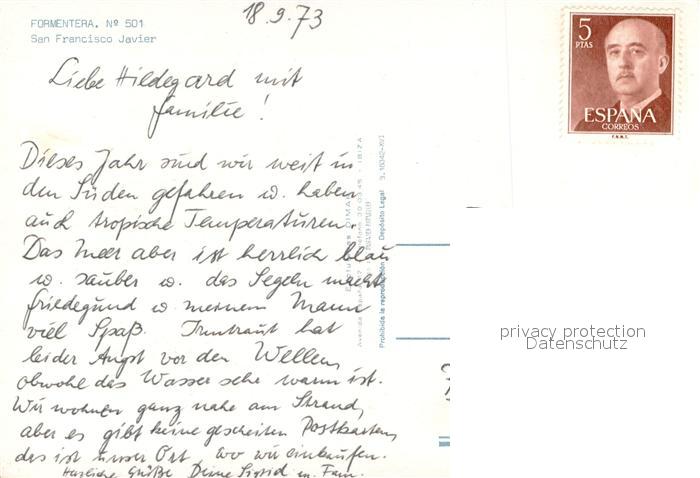 FORMENTERA. Nº 501
San Francisco Javier
18.9.73
Liebe Hildegard mit
Familie!
Dieses Jahr sind wir weit in
den Süden gefahren u. haben
auch tropische Temperaturen.
Das Meer aber ist herrlich blau
u. sauber u. das Segeln macht
Friedegund u. meinem Mann
viel Spaß. Irmtraut hat
leider Angst vor den Wellen,
obwohl das Wasser sehr warm ist.
Wir wohnen ganz nahe am Strand,
aber es gibt keine gescheiten Postkarten,
das ist unser Ort, wo wir einkaufen.
Herzliche Grüße Deine Sigrid m. Fam.
IBIZA
Prohibida la reproducción Depósito Legal
5
PTAS
ESPAÑA
CORREOS
F.N.M.T.
privacy protection
Datenschutz